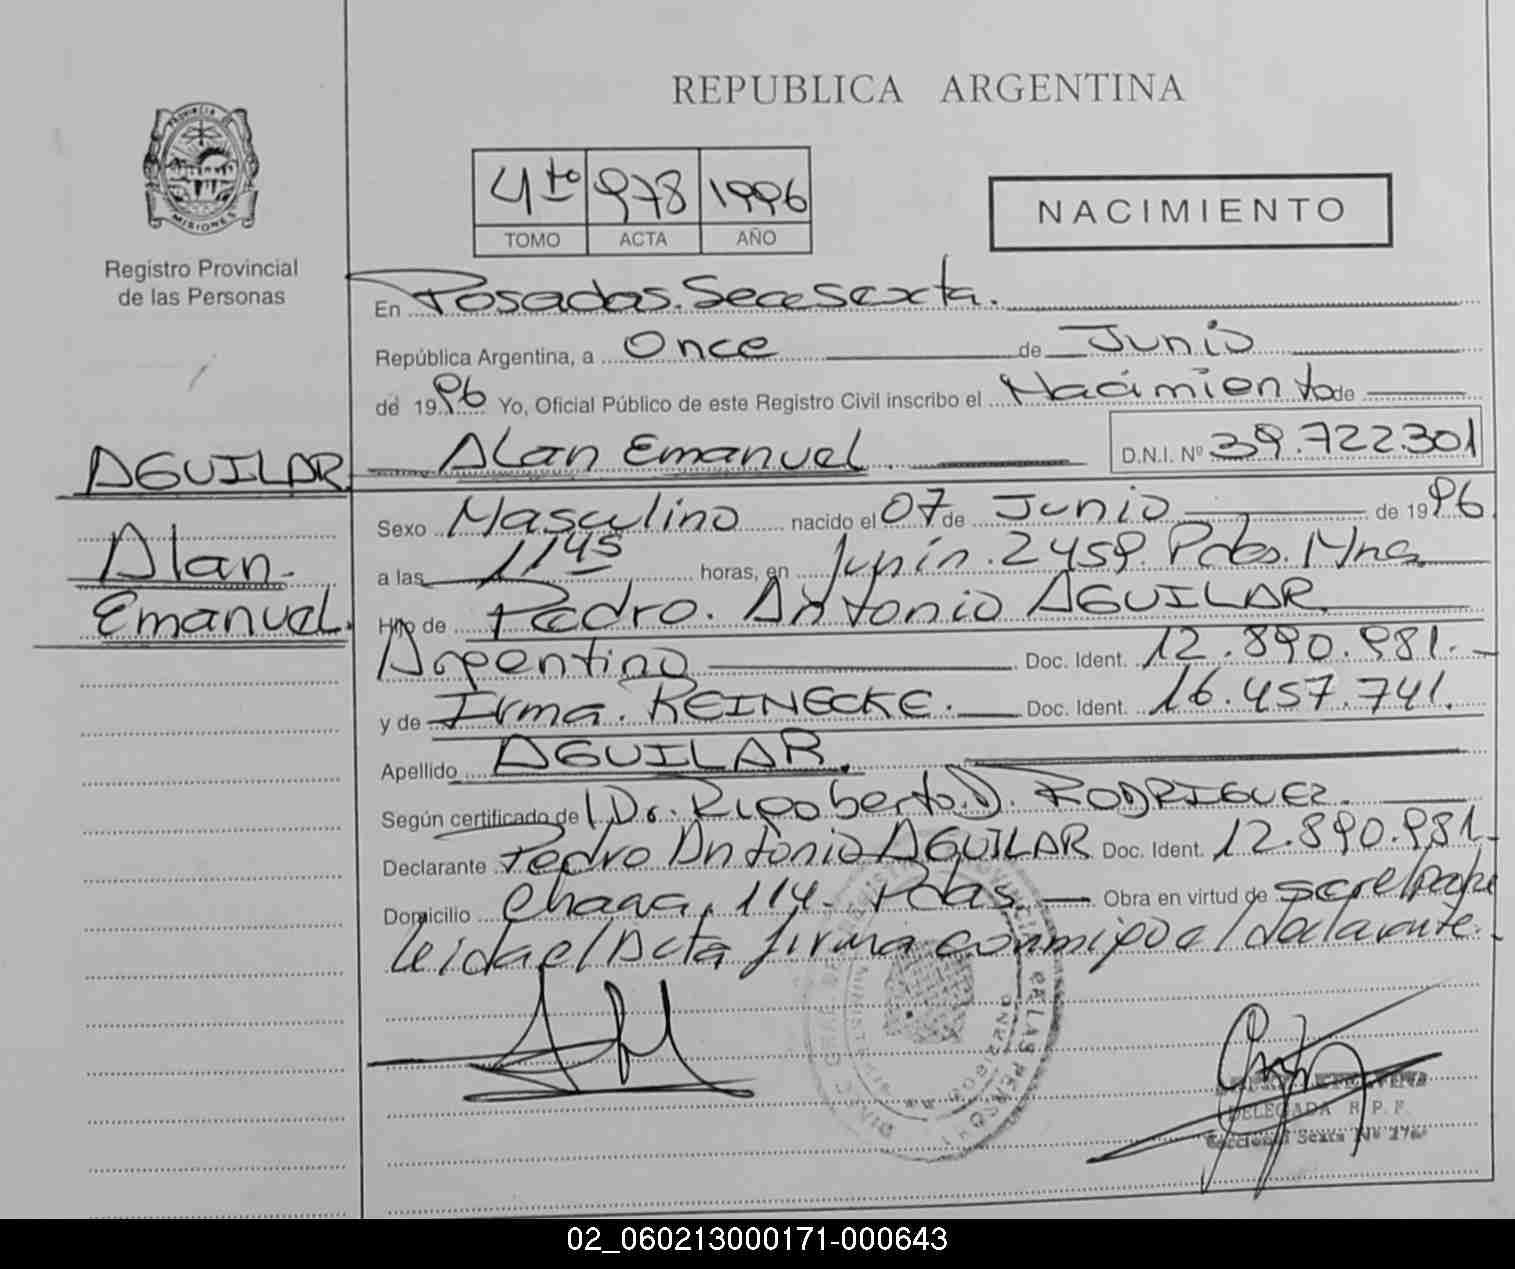 REPUBLICA ARGENTINA
PROVINCIA DE
MISIONES
Registro Provincial
de las Personas
4to 978 1996
TOMO ACTA AÑO
NACIMIENTO
En Posadas. Secc Sexta.
República Argentina, a Once de Junio
de 1996 Yo, Oficial Público de este Registro Civil inscribo el Nacimiento de
Alan Emanuel D.N.I. Nº 39.722.301
AGUILAR
Alan
Emanuel.
Sexo Masculino nacido el 07 de Junio de 1996
a las 1145 horas, en Junín. 2459. Pdas. Mnes
Hijo de Pedro. Antonio AGUILAR
Argentino Doc. Ident. 12.890.981.-
y de Irma. REINECKE. Doc. Ident. 16.457.741.
Apellido AGUILAR.
Según certificado de Dr. Rigoberto. D. RODRIGUEZ.
Declarante Pedro Antonio AGUILAR Doc. Ident. 12.890.981.-
Domicilio 114. Pdas. Obra en virtud de
leida el Acta firma conmigo el declarante.-
DELEGADA R.P.P.
Seccional Sexta Nº
02_060213000171-000643